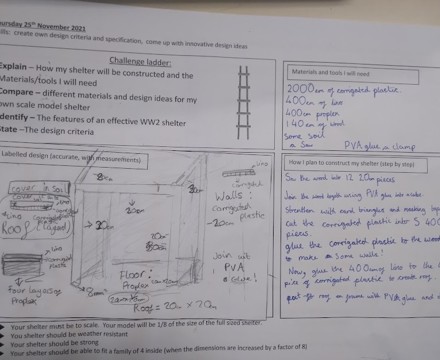 ursday 25th November 2021
ills: create own design criteria and specification, come up with innovative design ideas
Challenge ladder:
Explain – How my shelter will be constructed and the
Materials/tools I will need
Compare – different materials and design ideas for my
own scale model shelter
Identify – The features of an effective WW2 shelter
State – The design criteria
Materials and tools I will need
2000cm of corrigated plastic.
400cm of lino
400cm proplex
140cm of wood.
Some soil
a Saw PVA glue a clamp
Labelled design (accurate, with measurements)
cover in soil
Lino
Roof (layed)
Lino
four layers
Proplex
8cm
20cm
20cm
Floor:
Proplex
Roof = 20cm x 20cm
Lino
Walls:
corrigated
plastic
20cm
Join with
PVA
Glue!
How I plan to construct my shelter (step by step)
Saw the wood into 12 20cm pieces
Join the wood together using PVA glue
Strenthen with card triangles and masking tape
Cut the corrigated plastic into 5 400
pieces.
glue the corrigated plastic to the wood
to make some walls!
Now, glue the 400cm lino to the
piece of corrigated plastic to create
roof on frame with PVA glue and
➤ Your shelter must be to scale. Your model will be 1/8 of the size of the full sized shelter.
➤ You shelter should be weather resistant
➤ Your shelter should be strong
➤ Your shelter should be able to fit a family of 4 inside (when the dimensions are increased by a factor of 8)